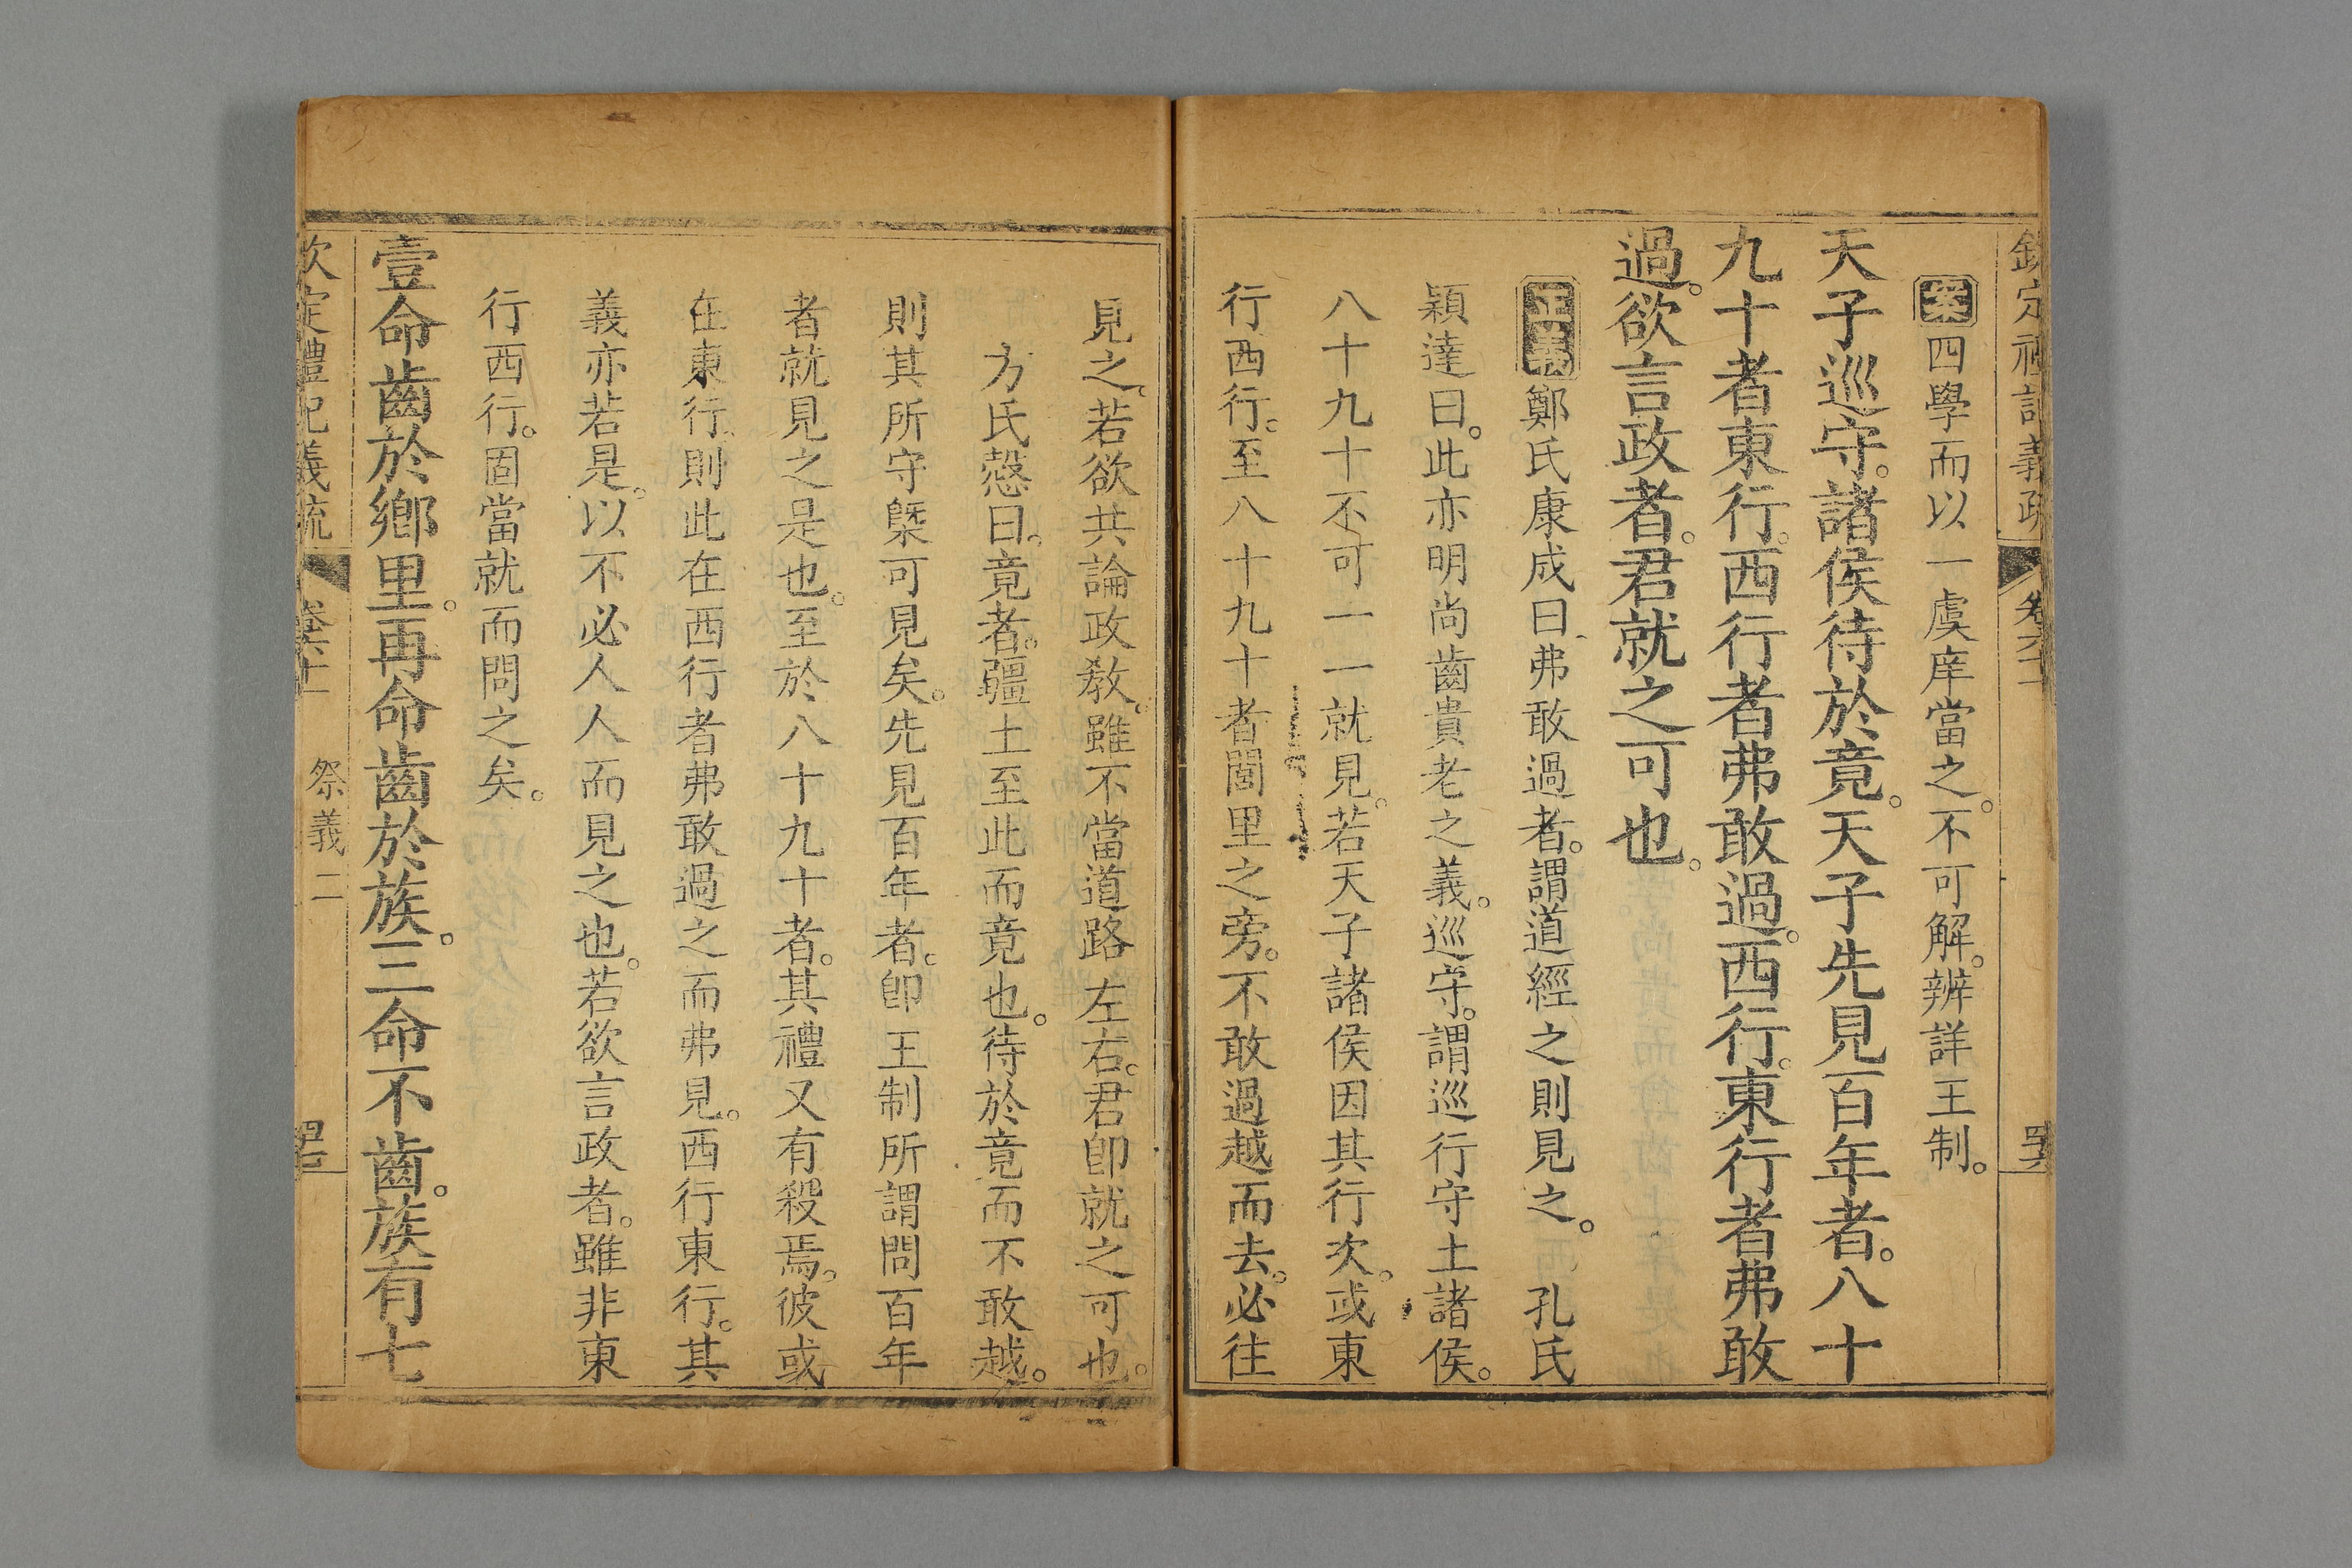 欽定禮記義疏 卷六十一
案四學而以一虞庠當之。不可解。辨詳王制。
天子巡守。諸侯待於竟。天子先見百年者。八十
九十者東行。西行者弗敢過。西行。東行者弗敢
過。欲言政者。君就之可也。
正義鄭氏康成曰弗敢過者。謂道經之則見之。 孔氏
穎達曰。此亦明尚齒貴老之義。巡守。謂巡行守土諸侯。
八十九十不可一一就見。若天子諸侯因其行次。或東
行西行。至八十九十者閭里之旁。不敢過越而去。必往
見之。若欲共論政教。雖不當道路左右。君卽就之可也。
方氏愨曰。竟者。疆土至此而竟也。待於竟而不敢越。
則其所守槩可見矣。先見百年者。卽王制所謂問百年
者就見之是也。至於八十九十者。其禮又有殺焉。彼或
在東行。則此在西行者弗敢過之而弗見。西行東行。其
義亦若是。以不必人人而見之也。若欲言政者。雖非東
行西行。固當就而問之矣。
壹命齒於鄉里。再命齒於族。三命不齒。族有七
欽定禮記義疏 卷六十一 祭義二